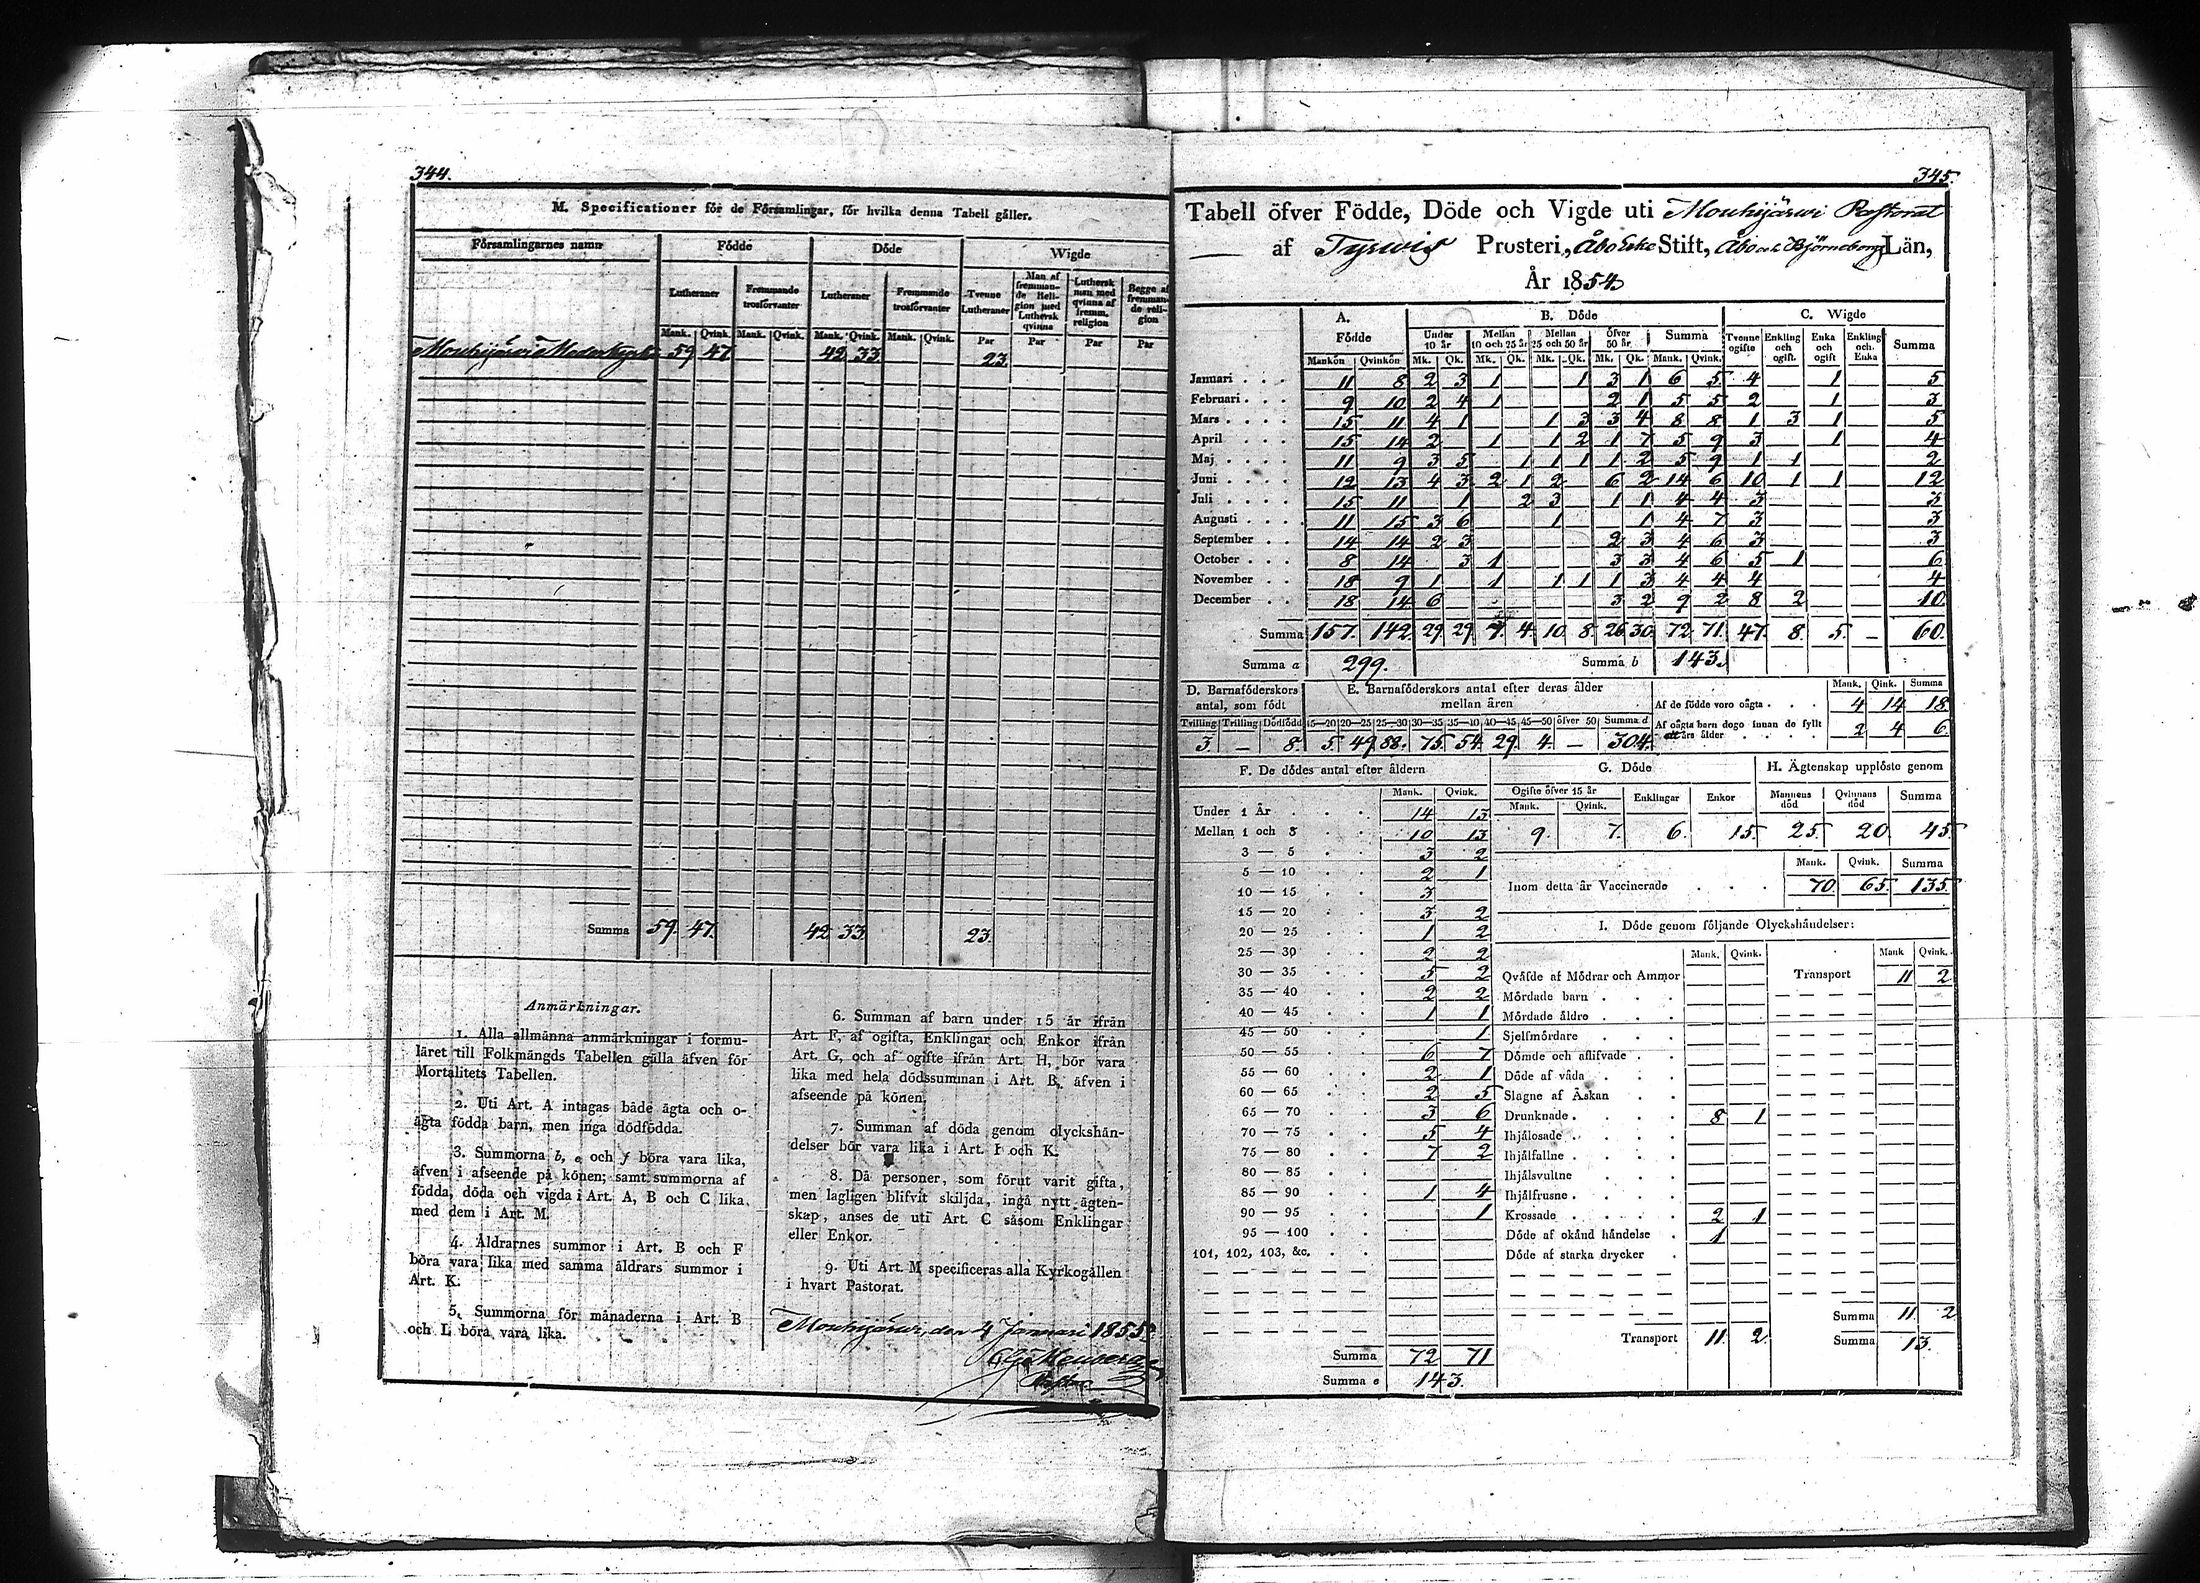 344.
M. Specificationer för de Församlingar, för hvilka denna Tabell gäller.
Församlingarnes namn Födde Döde Wigde
Lutheraner Fremmande trosförvanter Lutheraner Fremmande trosförvanter Tvenne Lutheraner Man af fremmande Religion med Luthersk qvinna Luthersk man med qvinna af fremm. religion Begge af fremmande religion
Mank. Qvink. Mank. Qvink. Mank. Qvink. Mank. Qvink. Par Par Par Par
Mouhijärvi Moderkyrka 59 47 42 33 23
Summa 59. 47. 42 33. 23.
Anmärkningar.
1. Alla allmänna anmärkningar i formu-
läret till Folkmängds Tabellen gälla äfven för
Mortalitets Tabellen.
2. Uti Art. A intagas både ägta och o-
ägta födda barn, men inga dödfödda.
3. Summorna b, e och f böra vara lika,
äfven i afseende på könen; samt summorna af
födda, döda och vigda i Art. A, B och C lika
med dem i Art. M.
4. Åldrarnes summor i Art. B och F
böra vara lika med samma åldrars summor i
Art. K.
5. Summorna för månaderna i Art. B
och L böra vara lika.
6. Summan af barn under 15 år ifrån
Art. F, af ogifta, Enklingar och Enkor ifrån
Art. G, och af ogifte ifrån Art. H, bör vara
lika med hela dödssumman i Art. B, äfven i
afseende på könen.
7. Summan af döda genom olyckshän-
delser bör vara lika i Art. I och K.
8. Då personer, som förut varit gifta,
men lagligen blifvit skiljda, ingå nytt ägten-
skap, anses de uti Art. C såsom Enklingar
eller Enkor.
9. Uti Art. M specificeras alla Kyrkogällen
i hvart Pastorat.
Mouhijärvi, den 4 Januari 1855.
345.
Tabell öfver Födde, Döde och Vigde uti Mouhijärwi Pastorat
af Tyrwis Prosteri, Åbo Erke Stift, Åbo och Björneborgs Län,
År 1854.
A. Födde B. Döde C. Wigde
Under 10 år Mellan 10 och 25 år Mellan 25 och 50 år Öfver 50 år Summa Tvenne ogifte Enkling och ogift. Enka och ogift Enkling och Enka Summa
Mankön Qvinkön Mk. Qk. Mk. Qk. Mk. Qk. Mk. Qk. Mank. Qvink.
Januari . . . 11 8 2 3 1 1 3 1 6 5 4 1 5
Februari . . . 9 10 2 4 1 2 1 5 5 2 1 3
Mars . . . . 15 11 4 1 1 3 3 4 8 8 1 3 1 5
April . . . . 15 14 2 1 1 2 1 7 5 9 3 1 4
Maj . . . . 11 9 3 5 1 1 1 1 2 5 9 1 1 2
Juni . . . . 12 13 4 3 2 1 2 6 2 14 6 10 1 1 12
Juli . . . . 15 11 1 2 3 1 1 4 4 3 3
Augusti . . . . 11 15 3 6 1 1 4 7 3 3
September . . 14 14 2 3 2 3 4 6 3 3
October . . . 8 14 3 1 3 3 4 6 5 1 6
November . . . 18 9 1 1 1 1 1 3 4 4 4 4
December . . 18 14 6 3 2 9 2 8 2 10
Summa 157. 142. 29. 29 7. 4. 10. 8. 26 30. 72. 71. 47. 8. 5. – 60.
Summa a 299. Summa b 143.
D. Barnaföderskors antal, som födt
Tvilling Trilling Dödfödd
3 – 8.
E. Barnaföderskors antal efter deras ålder mellan åren
15—20 20—25 25—30 30—35 35—40 40—45 45—50 öfver 50 Summa d
5. 49. 88. 75. 54. 29. 4. – 304.
Mank. Qink. Summa
Af de födde voro oägta . . . 4 14 18.
Af oägta barn dogo innan de fyllt ett års ålder 2 4 6.
F. De dödes antal efter åldern
Mank. Qvink.
Under 1 År . . . 14 13
Mellan 1 och 3 . . 10 13
3 — 5 . . 3 2
5 — 10 . . 2 1
10 — 15 . . 3
15 — 20 . . 3 2
20 — 25 . . 1 2
25 — 30 . . 2 2
30 — 35 . . 5 2
35 — 40 . . 2 2
40 — 45 . . 1 1
45 — 50 . . 1
50 — 55 . . 6 7
55 — 60 . . 2 1
60 — 65 . . 2 5
65 — 70 . . 3 6
70 — 75 . . 5 4
75 — 80 . . 7 2
80 — 85 . .
85 — 90 . . 1 4
90 — 95 . . 1
95 — 100 . .
101, 102, 103, &c. . .
Summa 72 71
Summa e 143.
G. Döde
Ogifte öfver 15 år Enklingar Enkor
Mank. Qvink.
9. 7. 6. 15.
H. Ägtenskap upplöste genom
Mannens död Qvinnans död Summa
25. 20. 45
Mank. Qvink. Summa
Inom detta år Vaccinerade . . . 70. 65. 135.
I. Döde genom följande Olyckshändelser:
Mank. Qvink. Mank Qvink.
Qväfde af Mödrar och Ammor Transport 11 2
Mördade barn . . .
Mördade äldre . . .
Sjelfmördare . . .
Dömde och aflifvade . .
Döde af våda . . .
Slagne af Åskan . .
Drunknade . . . . 8 1
Ihjälosade . . . .
Ihjälfallne . . . .
Ihjälsvultne . . .
Ihjälfrusne . . . .
Krossade . . . . 2 1
Döde af okänd händelse . 1
Döde af starka drycker .
Summa 11. 2
Transport 11. 2. Summa 13.